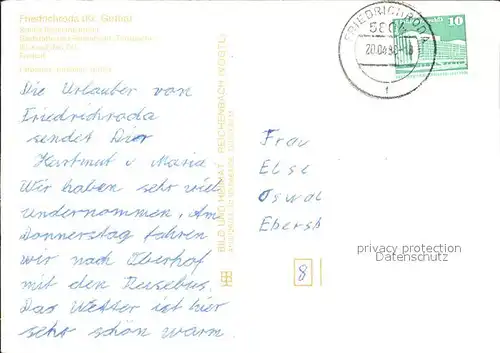 Friedrichroda Kr. Gotha
FRIEDRICHRODA
5804
20.04.8
1
10
Die Urlauber von
Friedrichroda
sendet Dir
Hartmut u Maria
Wir haben sehr viel
undernommen, Am
Donnerstag fahren
wir nach Oberhof
mit den Reisebus.
Das Wetter ist hier
sehr schön warm.
BILD UND HEIMAT REICHENBACH (VOGTL)
Frau
Else
Oswal
Ebersb
8
privacy protection
Datenschutz